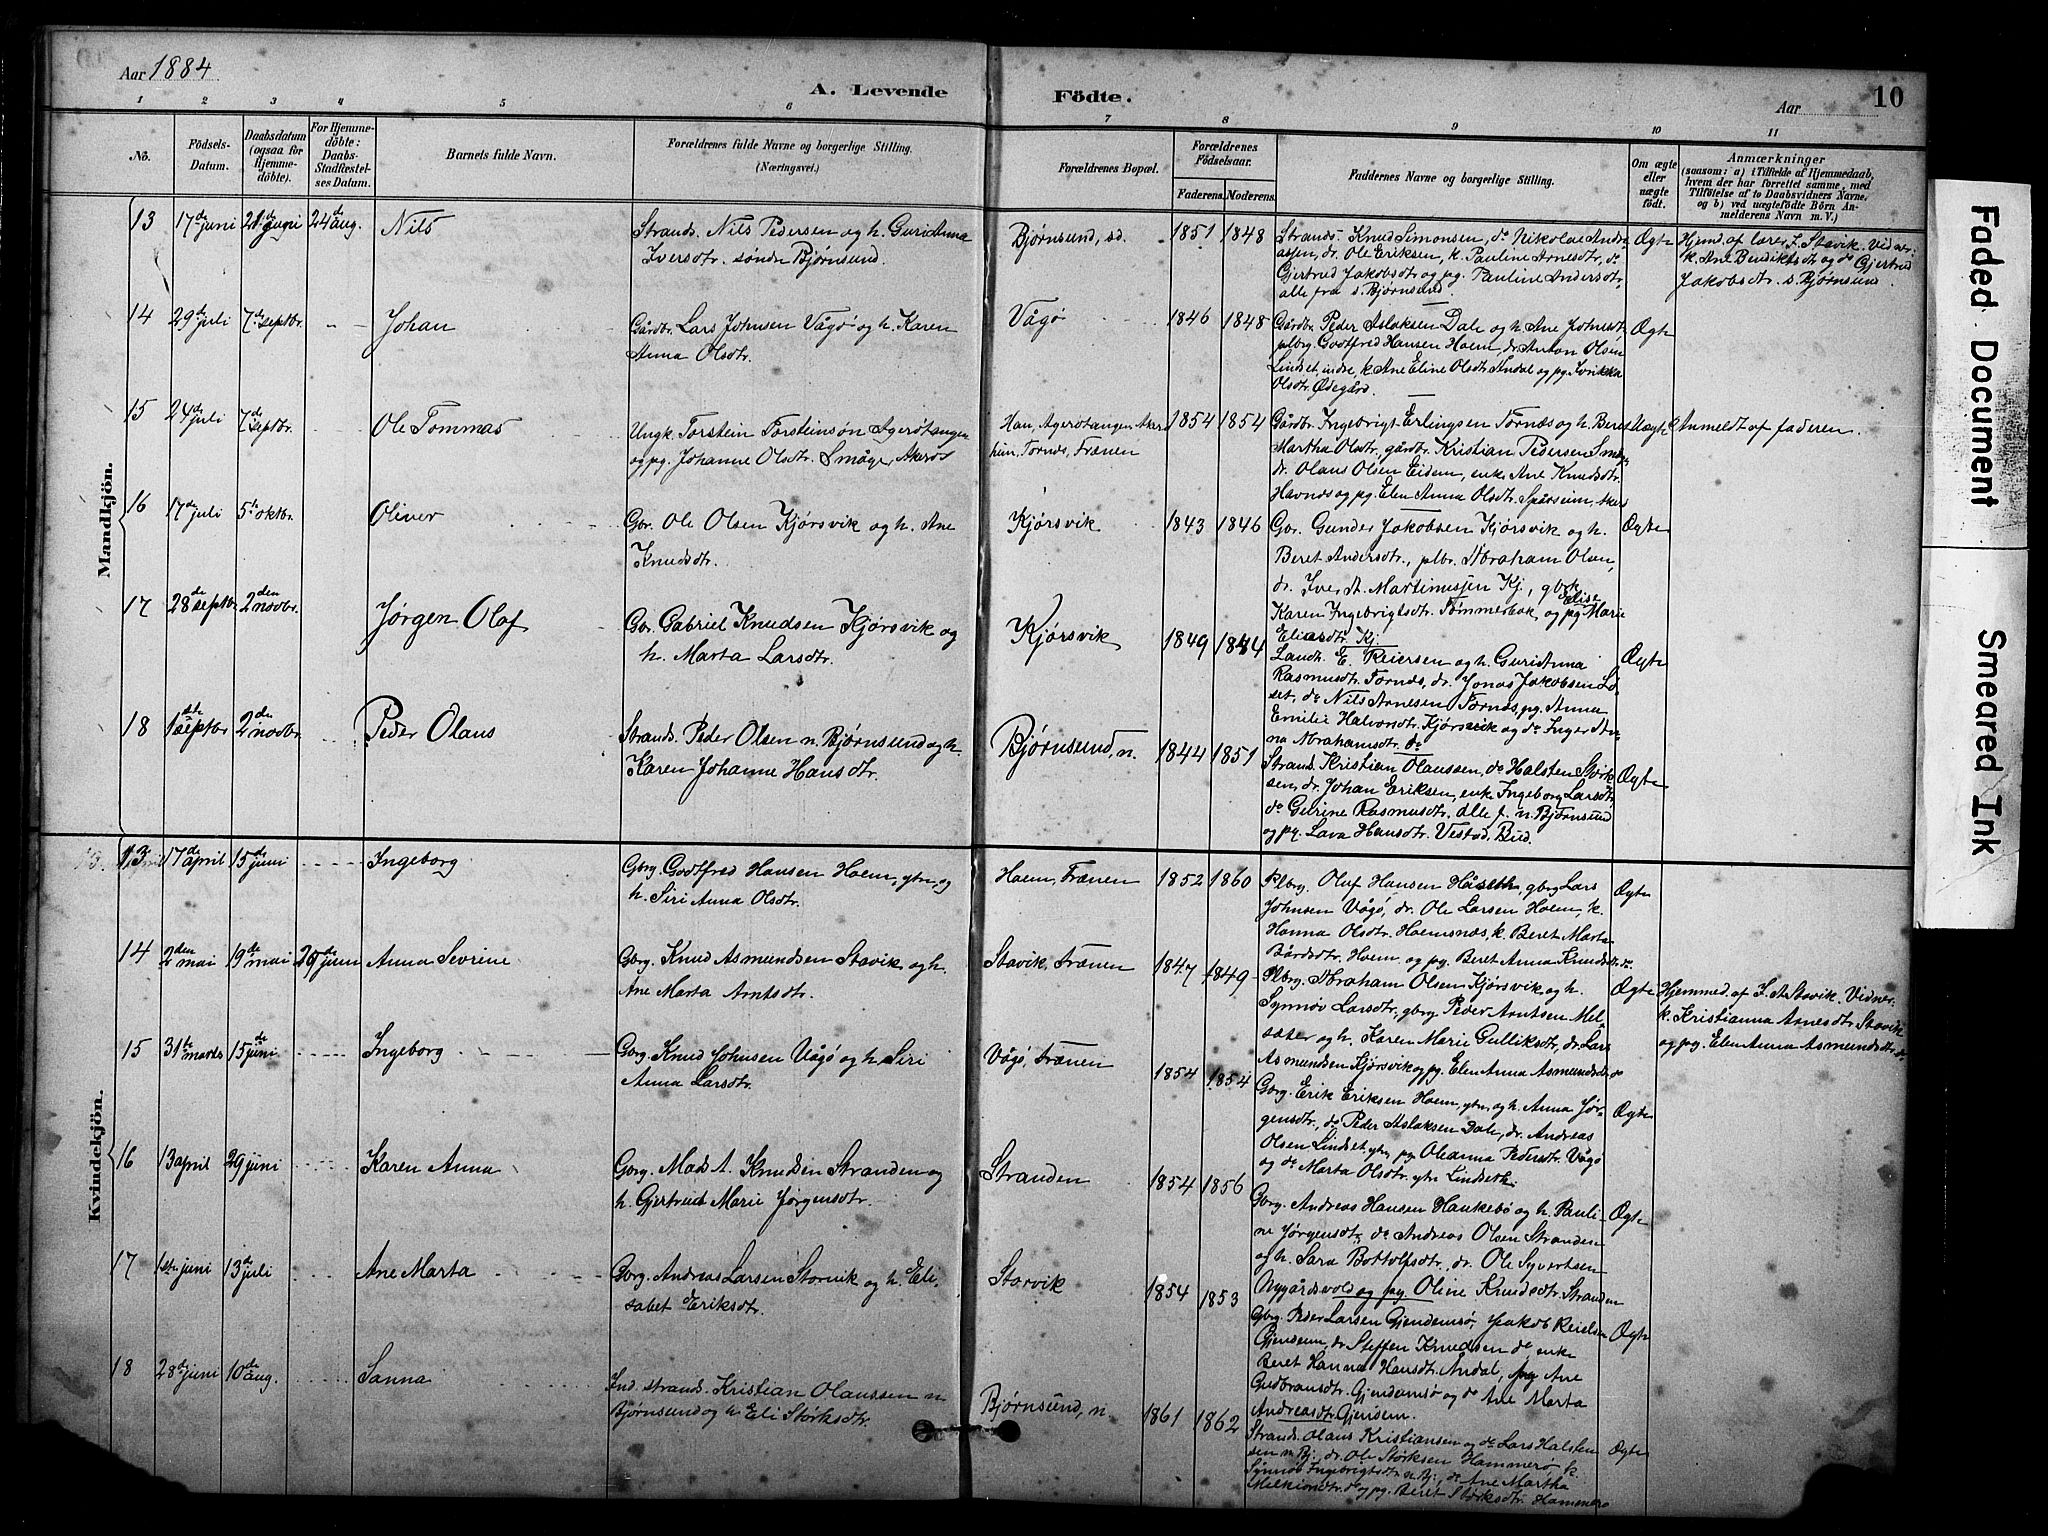 Aar 1884
A. Levende
Födte.
Aar
10
1 2 3 4 5 6 7 8 9 10 11
No.
Födsels-Datum.
Daabsdatum (ogsaa for Hjemme-döbte).
For Hjemme-döbte: Daabs-Stadfæstel-ses Datum.
Barnets fulde Navn.
Forældrenes fulde Navne og borgerlige Stilling.
(Næringsvei.)
Forældrenes Bopæl.
Forældrenes Födselsaar.
Faderens. Moderens.
Faddernes Navne og borgerlige Stilling.
Om ægte eller uægte födt.
Anmærkninger
(saasom: a) i Tilfælde af Hjemmedaab, hvem der har forrettet samme, med Tilföielse af to Daabsvidners Navne, og b) ved uægtefödte Börn An-melderens Navn m. V.)
Mandkjön.
13 17de juni 21de juni 24de aug. Nils
Strands. Nils Pedersen og h. Guri Anna
Iversdtr. søndr Bjørnsund.
Bjørnsund, sd. 1851 1848
Strands. Knud Simonsen, do Nikolai Andre
asen, dr. Ole Eriksen, k. Pauline Arnesdtr, do
Gjertrud Jakobsdtr og pg. Pauline Andersdtr,
alle fra s. Bjørnsund.
Ægte
Hjemd. af lærer I. Stavik. Vidner:
k. Ane Bendiktsdtr og do Gjertrud
Jakobsdtr. s. Bjørnsund.
14 29de juli 7de septbr. Johan
Gårdbr. Lars Johnsen Vågø og h. Karen
Anna Olsdtr.
Vågø 1846 1848
Gårdbr. Peder Aslaksen Dale og h. Ane Johnsdtr,
plbrg. Godtfred Hansen Hoem, dr. Anton Olsen
Lindset, indre, k. Ane Eline Olsdtr Andal og pg.
Olsdtr. Ødegård.
Ægte
15 24de juli 7de septbr. Ole Tommas
Ungk. Torstein Torsteinsøn Agerøtangen
og pg. Johanne Olsdtr. Småge, Akerø
Han, Agerøtangen, Aker
hun, Tornes, Frænen
1854 1854
Gårdbr. Ingebrigt Erlingsen Tornes og h. Beret
Martha Olsdtr, gårdbr. Kristian Pedersen Småge,
dr. Olaus Olsen Eidem, enke Ane Knudsdtr.
Havnes og pg. Elen Anna Olsdtr.
Uægte
Anmeldt af faderen.
16 17de juli 5te oktbr. Oliver
Gbr. Ole Olsen Kjørsvik og h. Ane
Knudsdtr.
Kjørsvik 1843 1846
Gbr. Gunder Jakobsen Kjørsvik og h.
Beret Andersdtr., plbr. Abraham Olsen,
dr. Iver A. Martinussen Kj., gbrk
Karen Ingebrigtsdtr. Tømmerbak, og pg. Elise Marie
Eliasdtr. Kj.
Ægte
17 28de septbr. 2den novbr. Jørgen Olaf
Gbr. Gabriel Knudsen Kjørsvik og
h. Marta Larsdtr.
Kjørsvik 1849 1844
Landh. E. Reiersen og h. Guri Anna
Rasmusdtr. Tornes, dr. Jonas Jakobsen Lø-
set, do Nils Arnesen Tornes, pg. Anna
Emilie Halvorsdtr. Kjørsvik og do Inger An-
na Abrahamsdtr. do
Ægte
18 1ste septbr. 2den novbr. Peder Olaus
Strands. Peder Olsen n. Bjørnsund og h.
Karen Johanne Hansdtr.
Bjørnsund, n. 1844 1851
Strands. Kristian Olaussen, do Halsten Størk-
sen, dr. Johan Eriksen, enk. Ingeborg Larsdtr,
do Gurine Rasmusdtr. alle f. n. Bjørnsund
og pg. Lava Hansdtr. Vestad, Bud.
Ægte
Kvindekjön.
13 17de april 15de juni Ingeborg
Gbrg. Godtfred Hansen Hoem, ytr., og
h. Siri Anna Olsdtr.
Hoem, Frænen 1852 1860
Plbrg. Oluf Hansen Håseth, gbrg Lars
Johnsen Vågø, dr. Ole Larsen Hoem, k.
Hanna Olsdtr. Hoemsnes, k. Beret Marta
Bårdsdtr. Hoem, og pg. Beret Anna Knudsdtr. do.
Ægte
14 2den mai 19de mai 29de juni Anna Sevrine
Gbrg. Knud Asmundsen Stavik og h.
Ane Marta Arntsdtr.
Stavik, Frænen 1847 1849
Plbrg. Abraham Olsen Kjørsvik og h.
Synnøv Larsdtr, gbrg Peder Arntsen Mel-
sæter og h. Karen Marie Gulliksdtr, dr. Lars
Asmundsen Kjørsvik og pg. Elen Anna Asmundsdtr do
Ægte
Hjemmed. af I. A. Stavik. Vidner:
k. Kristianna Arnesdtr. Stavik
og pg. Elen Anna Asmundsdtr. do
15 31te marts 15de juni Ingeborg
Gbrg. Knud Johnsen Vågø og h. Siri
Anna Larsdtr.
Vågø, Frænen 1854 1854
Gbrg. Erik Eriksen Hoem, ytr., og h. Anna Jør-
gensdtr., do Peder Aslaksen Dale, dr. Andreas
Olsen Lindset, ytr., pg. Oleanna Pedersdtr. Vågø
og do Marta Olsdtr. ytr. Lindseth.
Ægte
16 13 april 29 juni Karen Anna
Gbrg. Mads A. Knudsen Stranden og
h. Gjertrud Marie Jørgensdtr.
Stranden 1854 1856
Gbrg. Andreas Hansen Haukebø og h. Pauli-
ne Jørgensdtr, do Andreas Olsen Stranden
og h. Sara Bottolfsdtr., dr. Ole Syvertsen
Nygårdsvold og pg. Oline Knudsdtr. Stranden
Ægte
17 1ste juni 13de juli Ane Marta
Gbrg. Andreas Larsen Storvik og h. Eli-
sabet Eriksdtr.
Storvik 1854 1853
Gbrg. Peder Larsen Gjendemsø, Jakob Reielsen
Gjendem, dr. Steffen Knudsen do enke
Beret Hanna Hansdtr. Andal, pg Ane
Gudbrandsdtr. Gjendemsø og do Ane Marta
Andreasdtr. Gjendem.
Ægte
18 28de juni 10de aug. Sanna
Ind. strands. Kristian Olaussen n.
Bjørnsund og h. Eli Størksdtr.
Bjørnsund, n. 1861 1862
Strands. Olaus Kristiansen og do Lars Halsten
sen n. Bj., dr. Ole Størksen Hammerø, k.
Synnøv Ingebrigtsdtr n. Bj., do Ane Martha
Melkiorsdtr. do og pg. Beret Størksdtr. Hammerø
Ægte
Faded Document
Smeared Ink